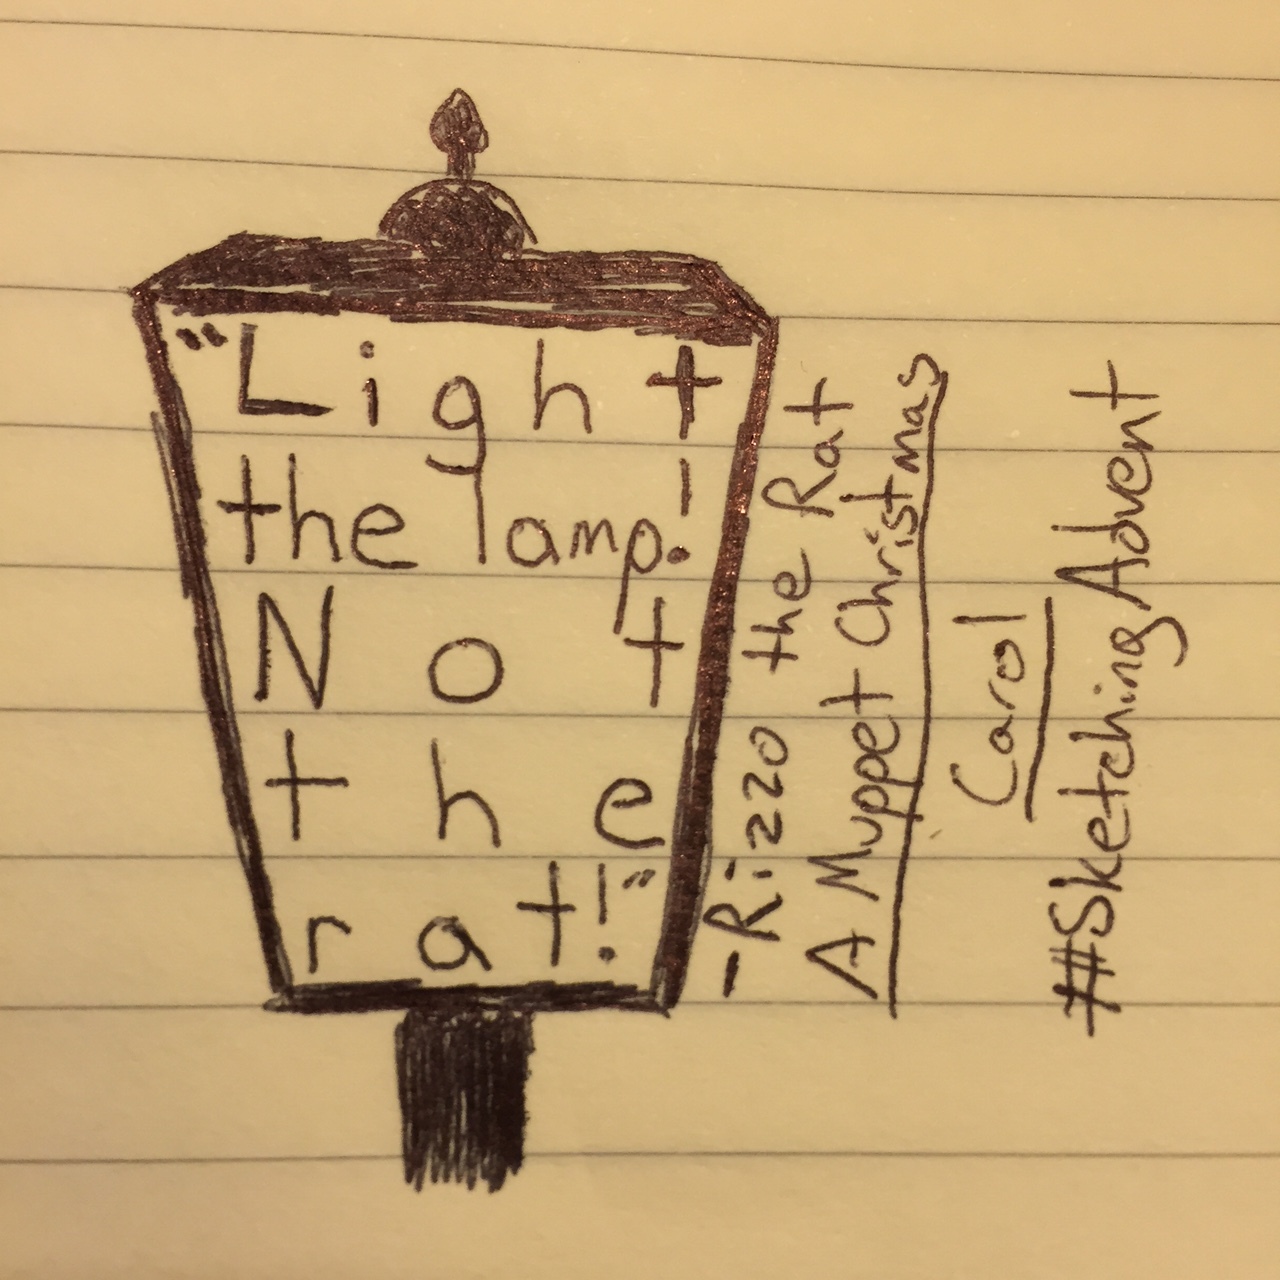 "Light
the lamp!
Not
the
rat!"
-Rizzo the Rat
A Muppet Christmas
Carol
#SketchingAdvent